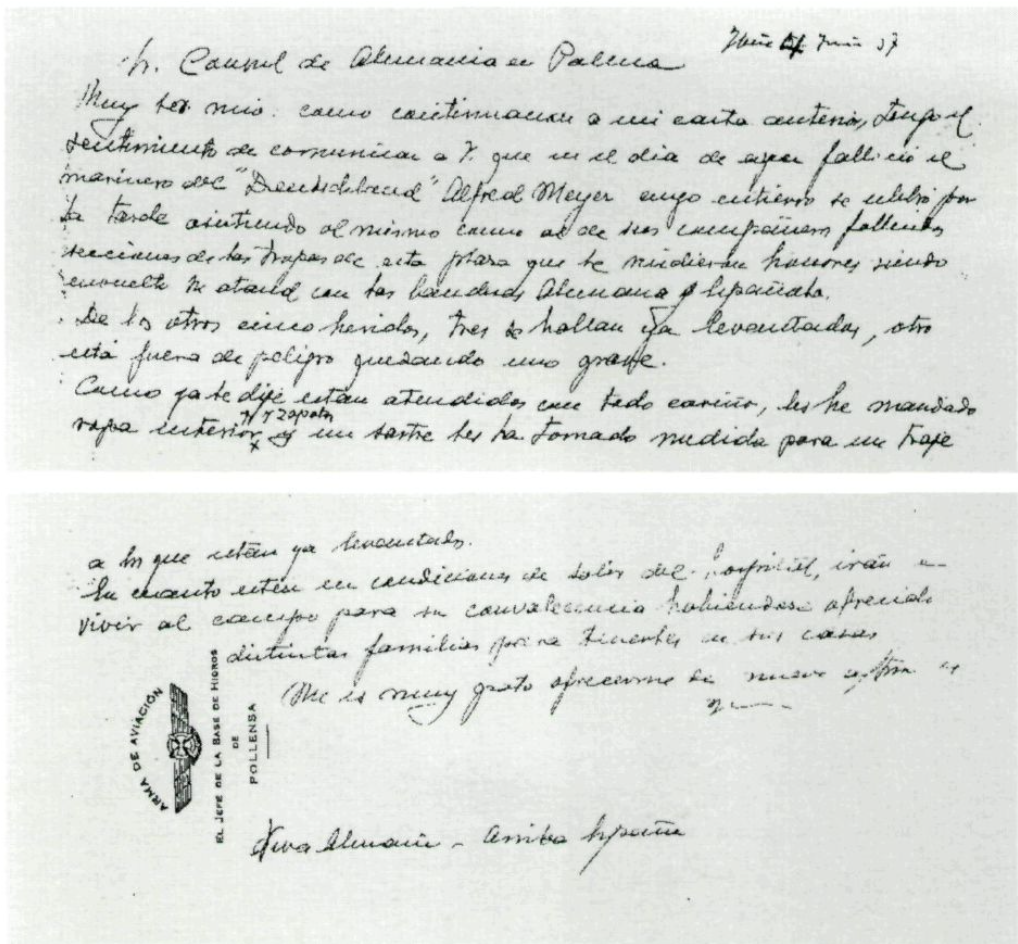 Junio 37
Sr. Consul de Alemania en Palma
Muy Sor mio: como continuacion a mi carta anterior, tengo el
sentimiento de comunicar a V. que en el dia de ayer fallecio el
marinero del "Deutschland" Alfred Meyer cuyo entierro se celebro por
la tarde asistiendo al mismo como al de sus compañeros fallecidos
secciones de las tropas de esta plaza que le rindieron honores siendo
envuelto su ataud con las banderas Alemana y Española.
De los otros cinco heridos, tres se hallan ya levantados, otro
está fuera de peligro quedando uno grave.
Como ya te dije están atendidos con todo cariño, les he mandado
y zapatos
ropa interior y un sastre les ha tomado medida para un traje
a los que están ya levantados.
En cuanto estén en condiciones de salir del hospital, irán a
vivir al campo para su convalecencia habiendose ofrecido
distintas familias para tenerles en sus casas
Me es muy grato ofrecerme de nuevo
ARMA DE AVIACIÓN
EL JEFE DE LA BASE DE HIDROS
DE
POLLENSA
Viva Alemania - Arriba España